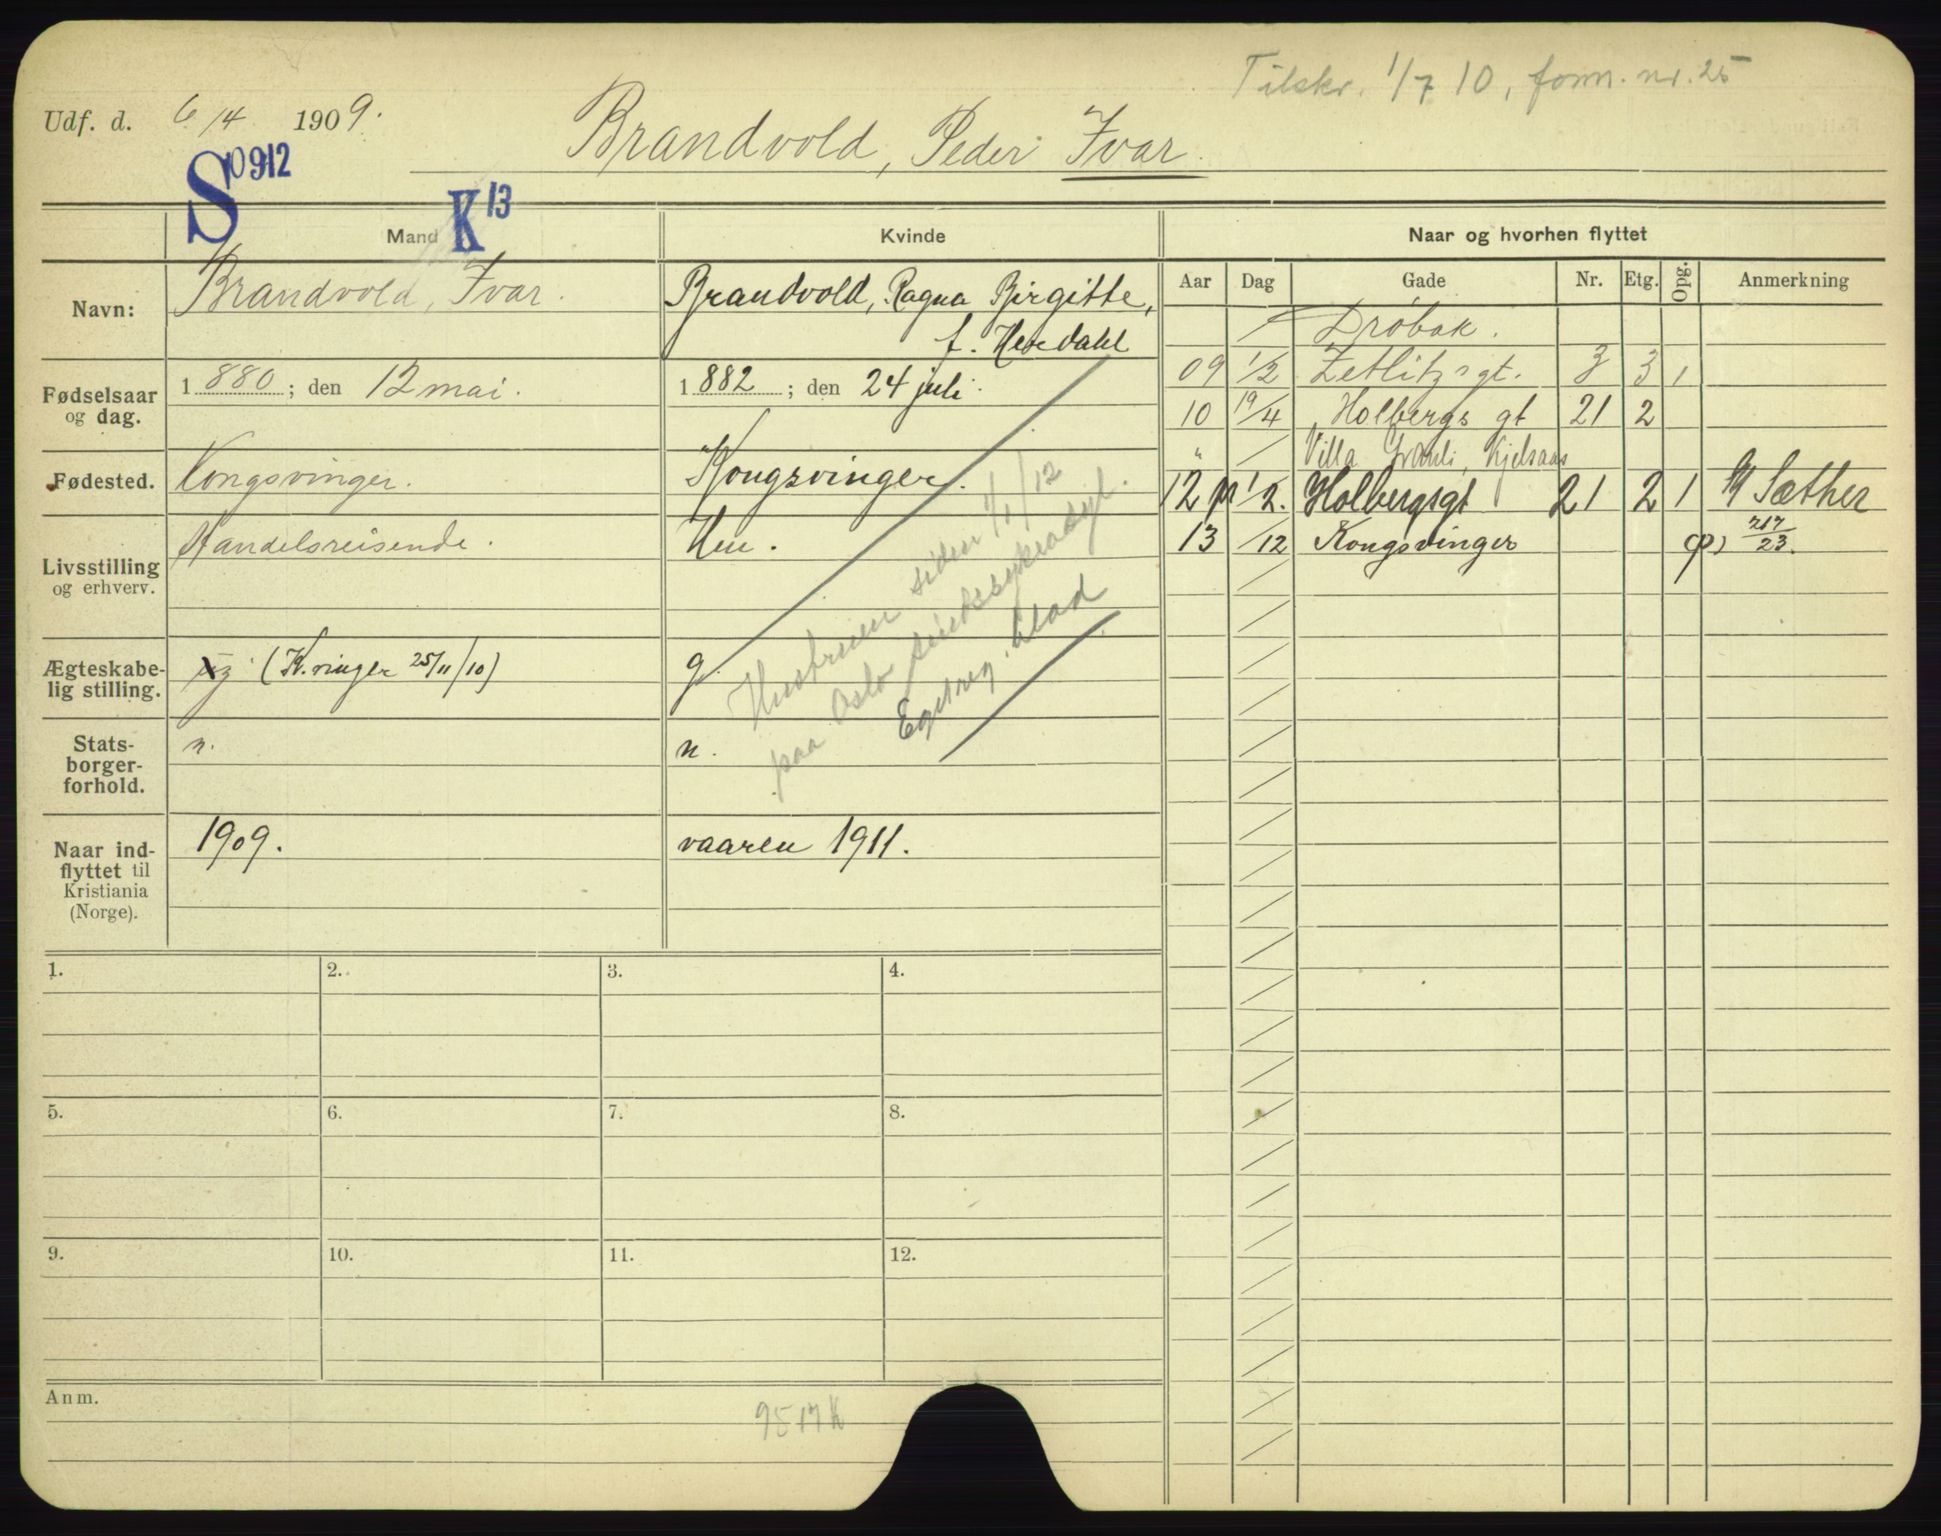 Tilskr. 1/7 10, form. nr. 25
Udf. d. 6/4 1909.
Brandvold, Peder Ivar.
S 0912
K 13
Mand
Kvinde
Naar og hvorhen flyttet
Navn:
Brandvold, Ivar.
Brandvold, Ragna Birgitte,
f.
Fødselsaar
og dag.
1880; den 12 mai.
1882; den 24 juli.
Fødested.
Kongsvinger.
Kongsvinger.
Livsstilling
og erhverv.
Handelsreisende.
Hu.
Ægteskabe-
lig stilling.
g (K.vinger 25/11/10)
g.
Stats-
borger-
forhold.
n.
n.
Hustruen siden 1/1/12
paa Oslo sindssykeasyl.
Egetreg. blad
Naar ind-
flyttet til
Kristiania
(Norge).
1909.
vaaren 1911.
Aar Dag Gade Nr. Etg. Opg. Anmerkning
Drøbak.
09 1/2 Zetlitzsgt. 3 3 1
10 19/4 Holbergs gt 21 2
" Villa Granli, Kjelsaas
12 1/2. Holbergsgt 21 2 1 Sæther
13 /12 Kongsvinger 217/23.
1. 2. 3. 4.
5. 6. 7. 8.
9. 10. 11. 12.
Anm.
9517K